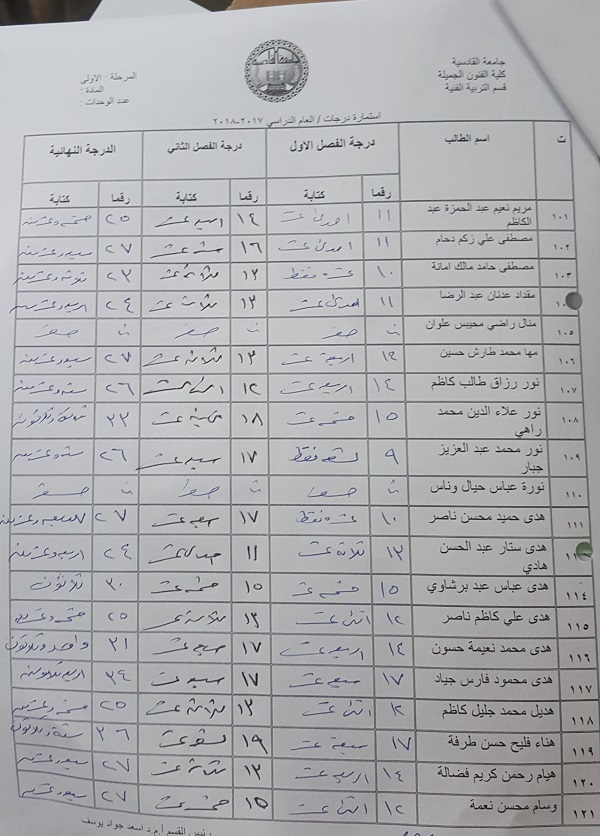 جامعة القادسية
كلية الفنون الجميلة
قسم التربية الفنية
المرحلة : الاولى
المادة :
عدد الوحدات :
استمارة درجات / العام الدراسي ٢٠١٧-٢٠١٨
ت اسم الطالب درجة الفصل الاول درجة الفصل الثاني الدرجة النهائية
رقما كتابة رقما كتابة رقما كتابة
١٠١ مريم نعيم عبد الحمزة عبد الكاظم ١١ احدى عشر ١٤ اربعة عشر ٢٥ خمسة وعشرين
١٠٢ مصطفى علي زكم دحام ١١ احدى عشر ١٦ ستة عشر ٢٧ سبعة وعشرين
١٠٣ مصطفى حامد مالك امانة ١٠ عشرة فقط ١٣ ثلاثة عشر ٢٣ ثلاثة وعشرين
مقداد عدنان عبد الرضا ١١ احدى عشر ١٣ ثلاثة عشر ٢٤ اربعة وعشرين
١٠٥ منال راضي محيبس علوان صفر صفر صفر
١٠٦ مها محمد طارش حسين ١٤ اربعة عشر ١٣ ثلاثة عشر ٢٧ سبعة وعشرين
١٠٧ نور رزاق طالب كاظم ١٤ اربعة عشر ١٢ اثنا عشر ٢٦ ستة وعشرين
١٠٨ نور علاء الدين محمد راهي ١٥ خمسة عشر ١٨ ثمانية عشر ٣٣ ثلاثة وثلاثون
١٠٩ نور محمد عبد العزيز جبار ٩ تسعة فقط ١٧ سبعة عشر ٢٦ ستة وعشرين
١١٠ نورة عباس حيال وناس صفر صفر صفر
١١١ هدى حميد محسن ناصر ١٠ عشرة فقط ١٧ سبعة عشر ٢٧ سبعة وعشرين
هدى ستار عبد الحسن هادي ١٣ ثلاثة عشر ١١ احدى عشر ٢٤ اربعة وعشرين
١١٤ هدى عباس عبد برشاوي ١٥ خمسة عشر ١٥ خمسة عشر ٣٠ ثلاثون
١١٥ هدى علي كاظم ناصر ١٢ اثنا عشر ١٣ ثلاثة عشر ٢٥ خمسة وعشرين
١١٦ هدى محمد نعيمة حسون ١٤ اربعة عشر ١٧ سبعة عشر ٣١ واحد وثلاثون
١١٧ هدى محمود فارس جياد ١٧ سبعة عشر ١٧ سبعة عشر ٣٤ اربع وثلاثون
١١٨ هديل محمد جليل كاظم ١٢ اثنا عشر ١٣ ثلاثة عشر ٢٥ خمسة وعشرين
١١٩ هناء فليح حسن طرفة ١٧ سبعة عشر ١٩ تسعة عشر ٣٦ ستة وثلاثون
١٢٠ هيام رحمن كريم فضالة ١٤ اربعة عشر ١٣ ثلاثة عشر ٢٧ سبعة وعشرين
١٢١ وسام محسن نعمة ١٢ اثنا عشر ١٥ خمسة عشر ٢٧ سبعة وعشرين
رئيس القسم أ.م.د اسعد جواد يوسف